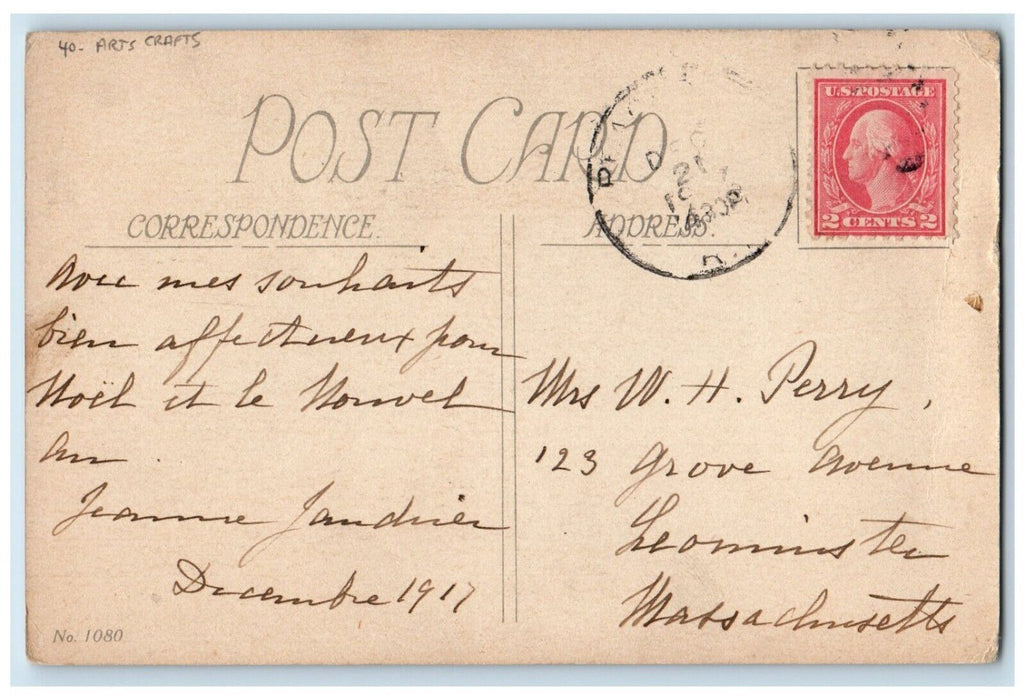 40- ARTS CRAFTS
POST CARD
U.S. POSTAGE
2 CENTS 2
DEC
21
CORRESPONDENCE.
ADDRESS.
Avec mes souhaits
bien affectueux pour
Noël et le Nouvel
an.
Jeanne
Decembre 1917
Mrs W. H. Perry,
123 Grove Avenue
Leominster
Massachusetts
No. 1080